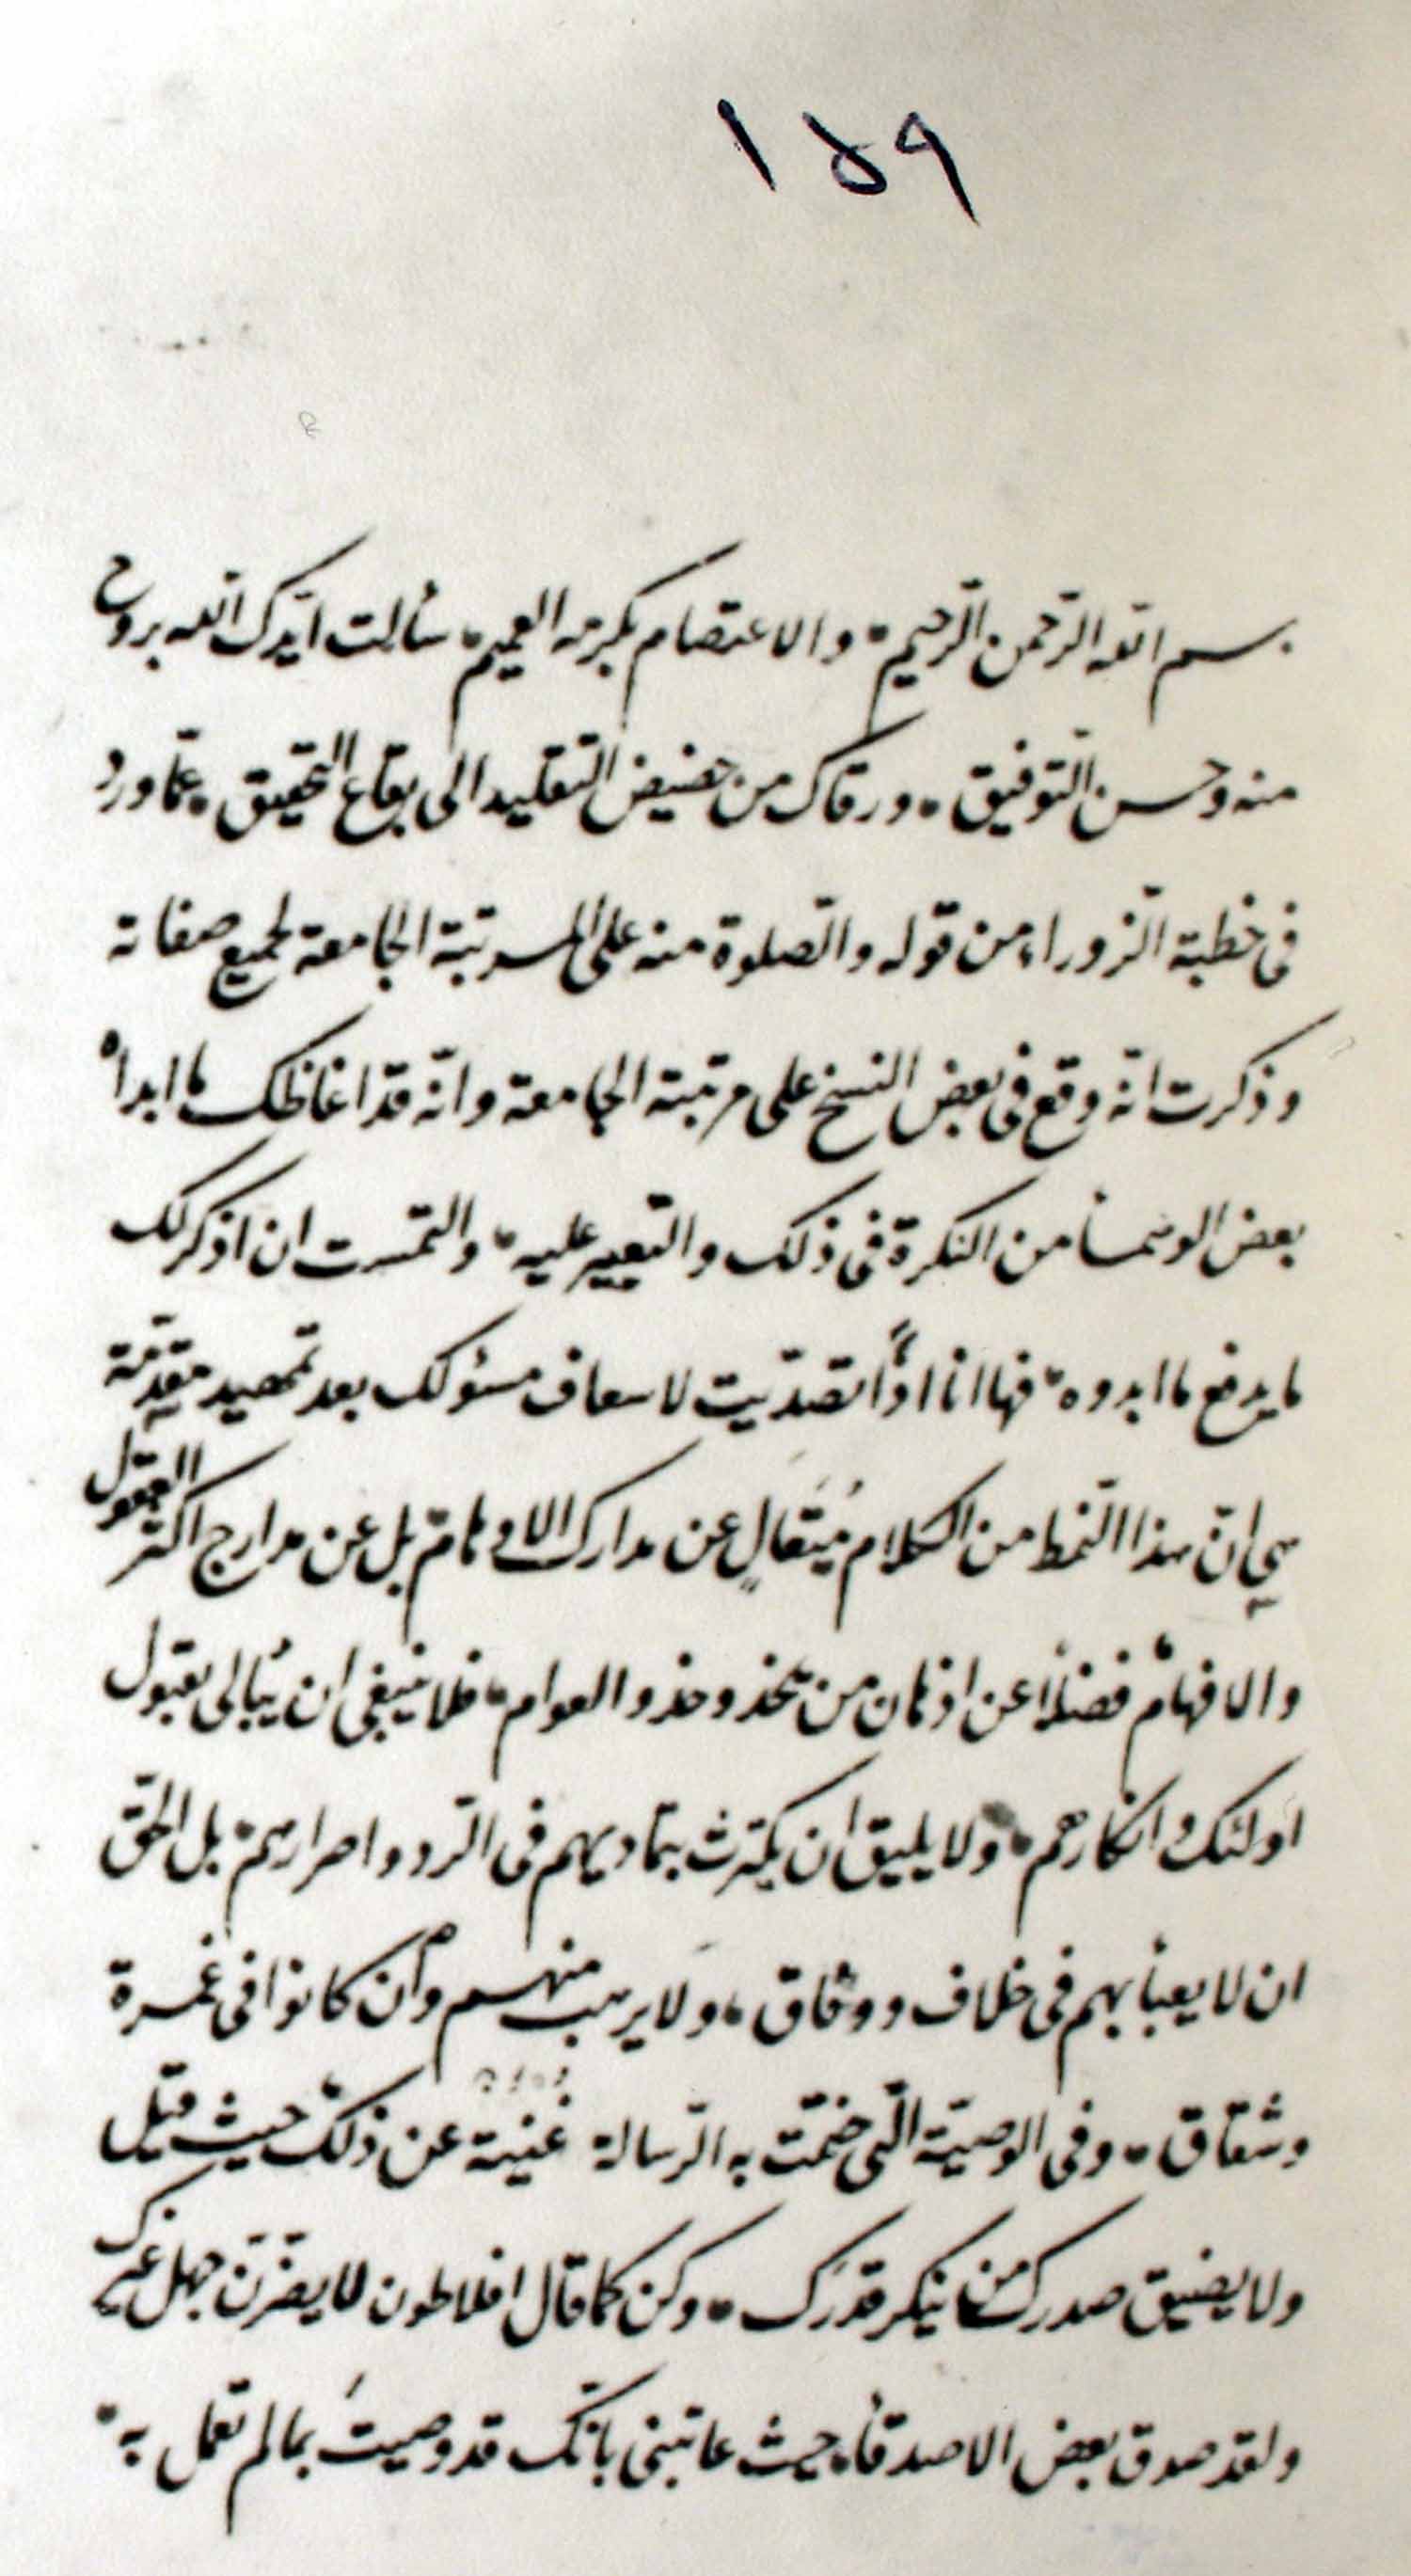 ١٥٩
بسم الله الرّحمن الرّحيم والاعتصام بكرمه العميم سألت ايّدك الله بروح
منه وحسن التّوفيق ورقاك من حضيض التّقليد الى بقاع التّحقيق عمّا ورد
فى خطبة الزّوراء من قوله والصّلوة منه على المرتبة الجامعة لجميع صفاته
وذكرت انّه وقع فى بعض النسخ على مرتبة الجامعة وانّه قد اغاظك ما ابداه
بعض من النكرة فى ذلك والتعيير عليه والتمست ان اذكر لك
ما يدفع ما ابدوه فها انا اذاً تصدّيت لاسعاف مسؤلك بعد تمهيد مقدّمة
هى انّ هذا النّمط من الكلام مُتَعالٍ عن مدارك الاوهام بل عن مدارج اكثر العقول
والافهام فضلاً عن اذهان من يحذو حذو العوام فلا ينبغى ان يُبالى بقبول
اولئك وانكارهم ولا يليق ان يكترث بتماديهم فى الرّد واصرارهم بل الحقّ
ان لا يعبأ بهم فى خلاف ووفاق ولا يرهب منهم وان كانوا فى غمرة
وشقاق وفى الوصيّة الّتى ختمت به الرّسالة غنية عن ذلك حيث قيل
ولا يضيق صدرك ممن ينكر قدرك وكن كما قال افلاطون لا يضرّنّ جهل غيرك
ولقد صدق بعض الاصدقاء حيث عاتبنى بانّك قد وصيتَ بما لم تعمل به